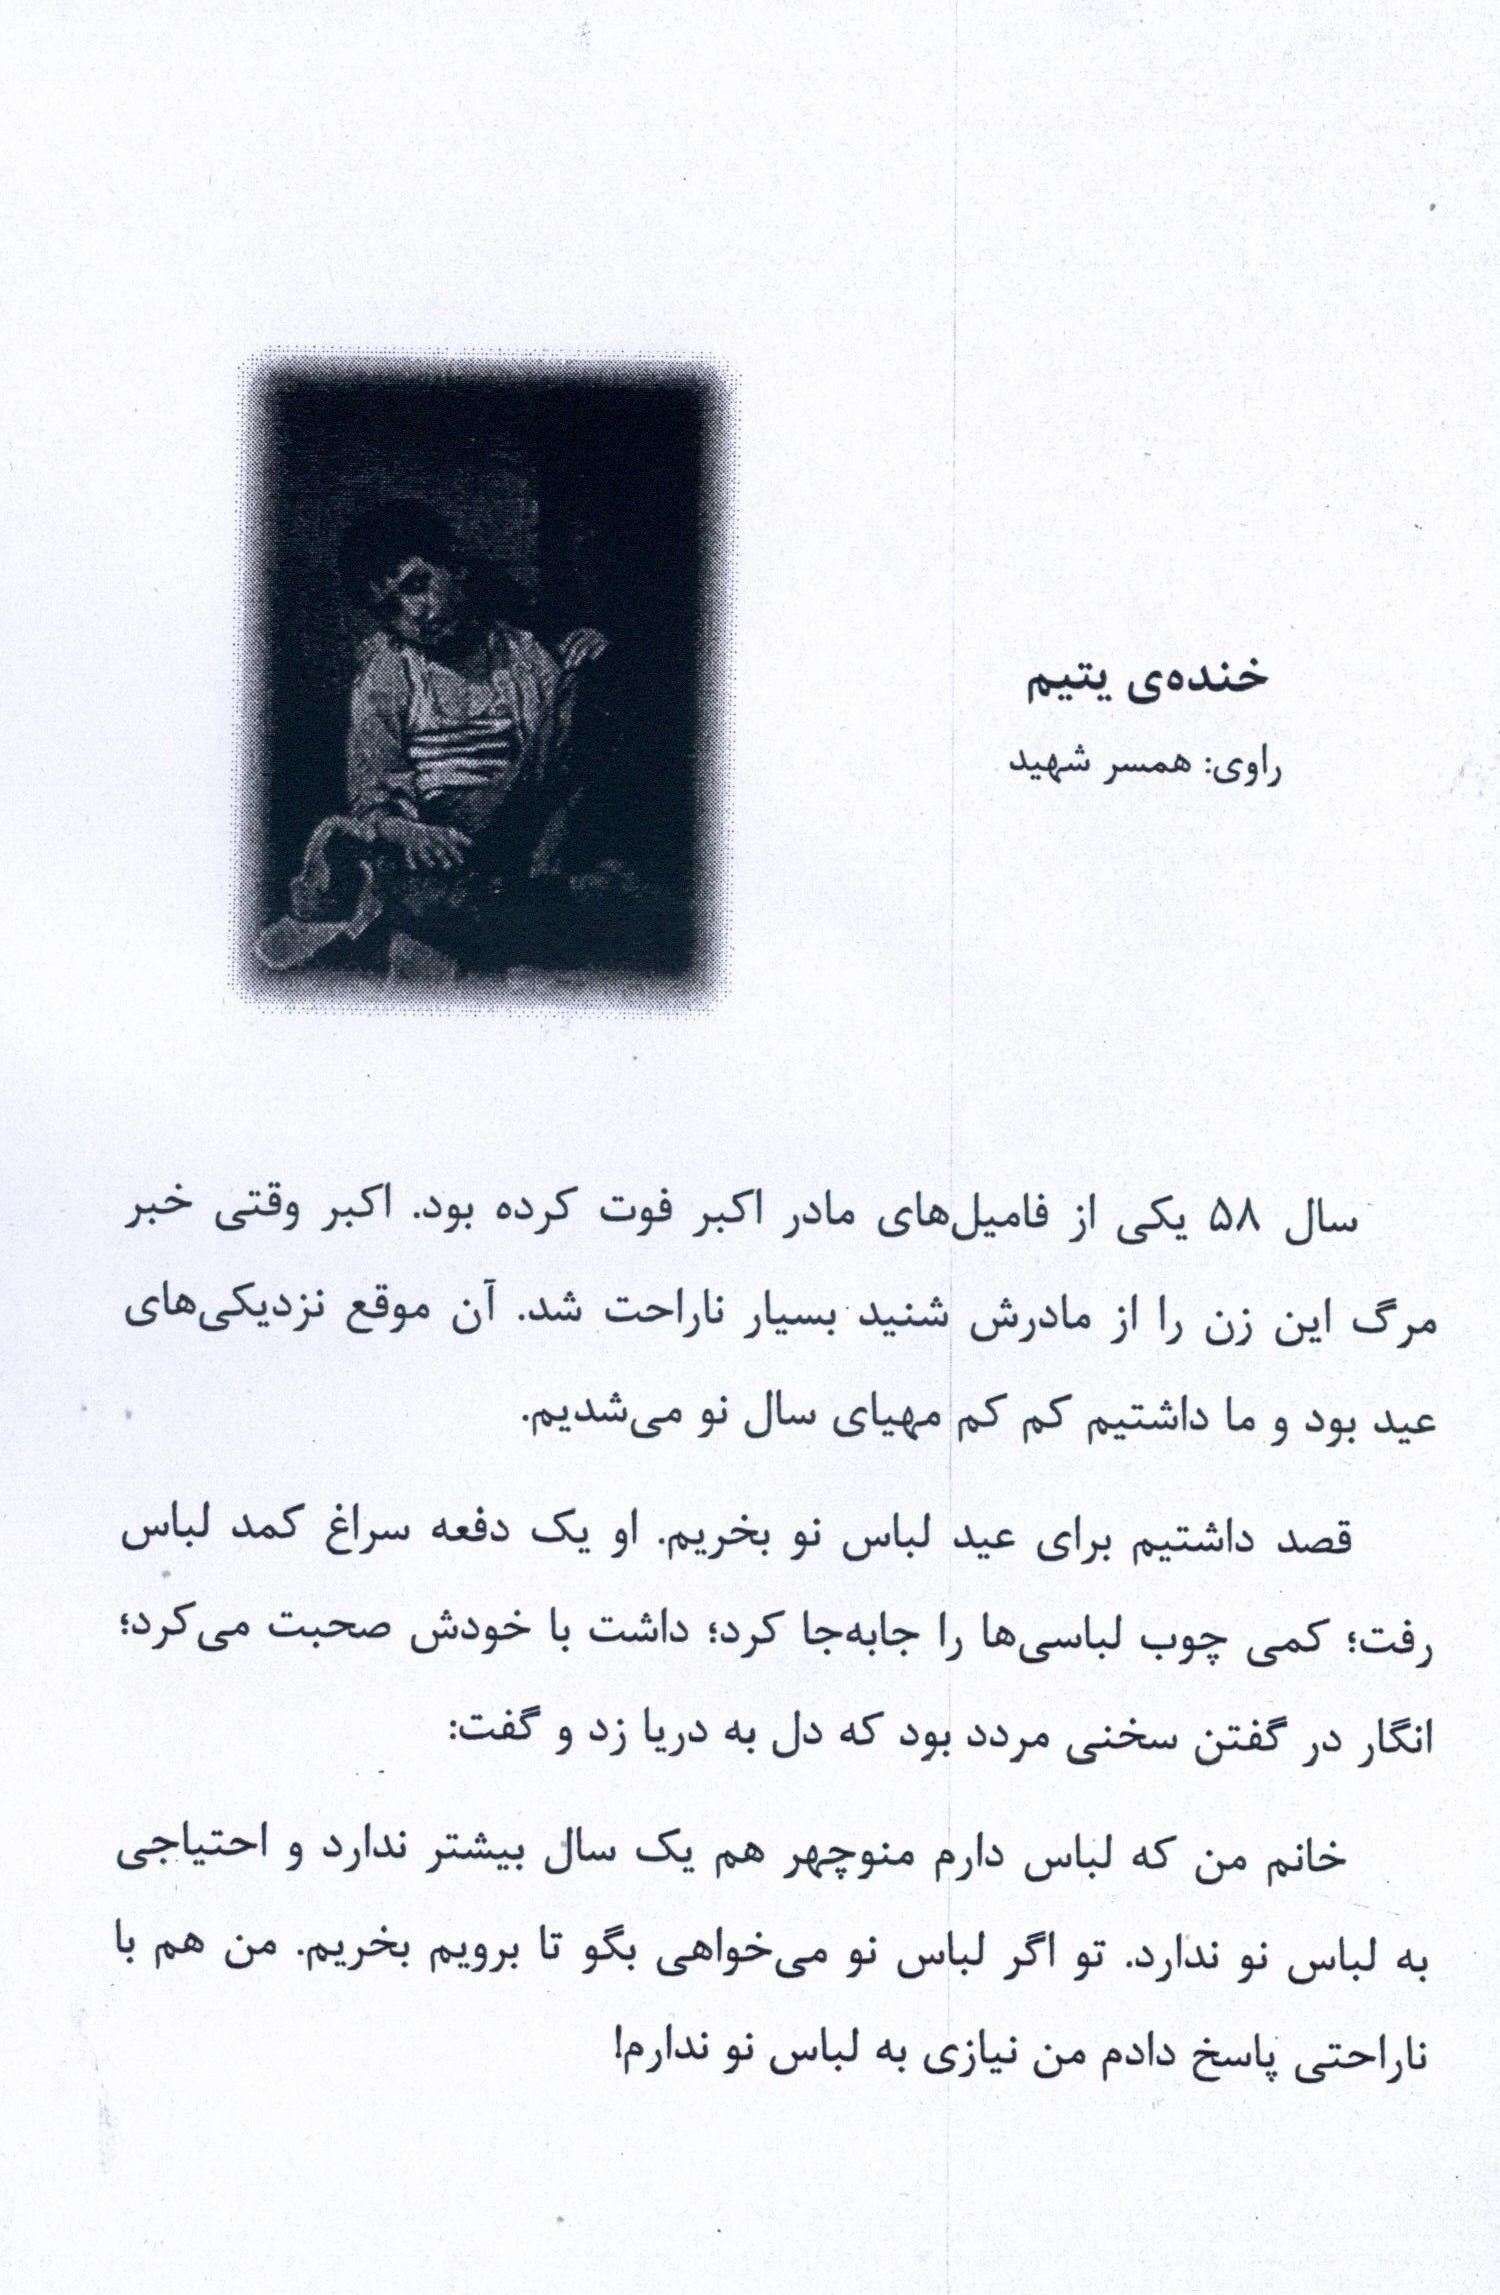 خنده‌ی یتیم
راوی: همسر شهید
سال ۵۸ یکی از فامیل‌های مادر اکبر فوت کرده بود. اکبر وقتی خبر
مرگ این زن را از مادرش شنید بسیار ناراحت شد. آن موقع نزدیکی‌های
عید بود و ما داشتیم کم کم مهیای سال نو می‌شدیم.
قصد داشتیم برای عید لباس نو بخریم. او یک دفعه سراغ کمد لباس
رفت؛ کمی چوب لباسی‌ها را جابه‌جا کرد؛ داشت با خودش صحبت می‌کرد؛
انگار در گفتن سخنی مردد بود که دل به دریا زد و گفت:
خانم من که لباس دارم منوچهر هم یک سال بیشتر ندارد و احتیاجی
به لباس نو ندارد. تو اگر لباس نو می‌خواهی بگو تا برویم بخریم. من هم با
ناراحتی پاسخ دادم من نیازی به لباس نو ندارم!